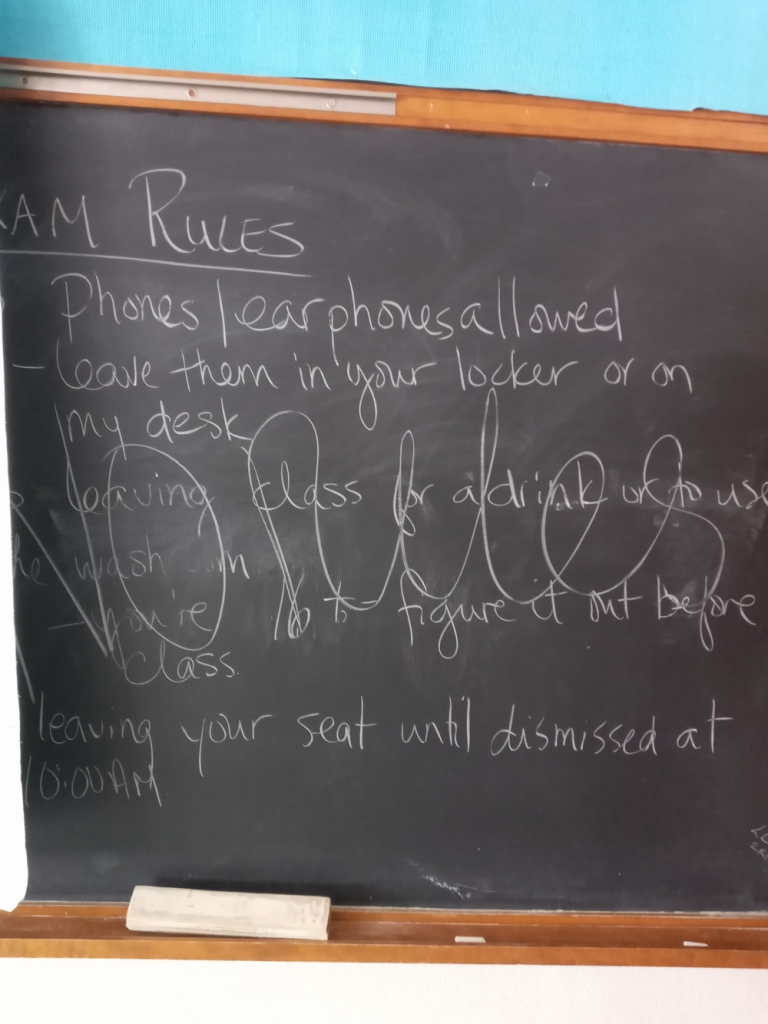 XAM RULES
Phones/earphones allowed
- leave them in your locker or on
my desk
leaving class for a drink or to use
he washroom
- you're 16 to figure it out before
class.
leaving your seat until dismissed at
10:00AM.
No rules